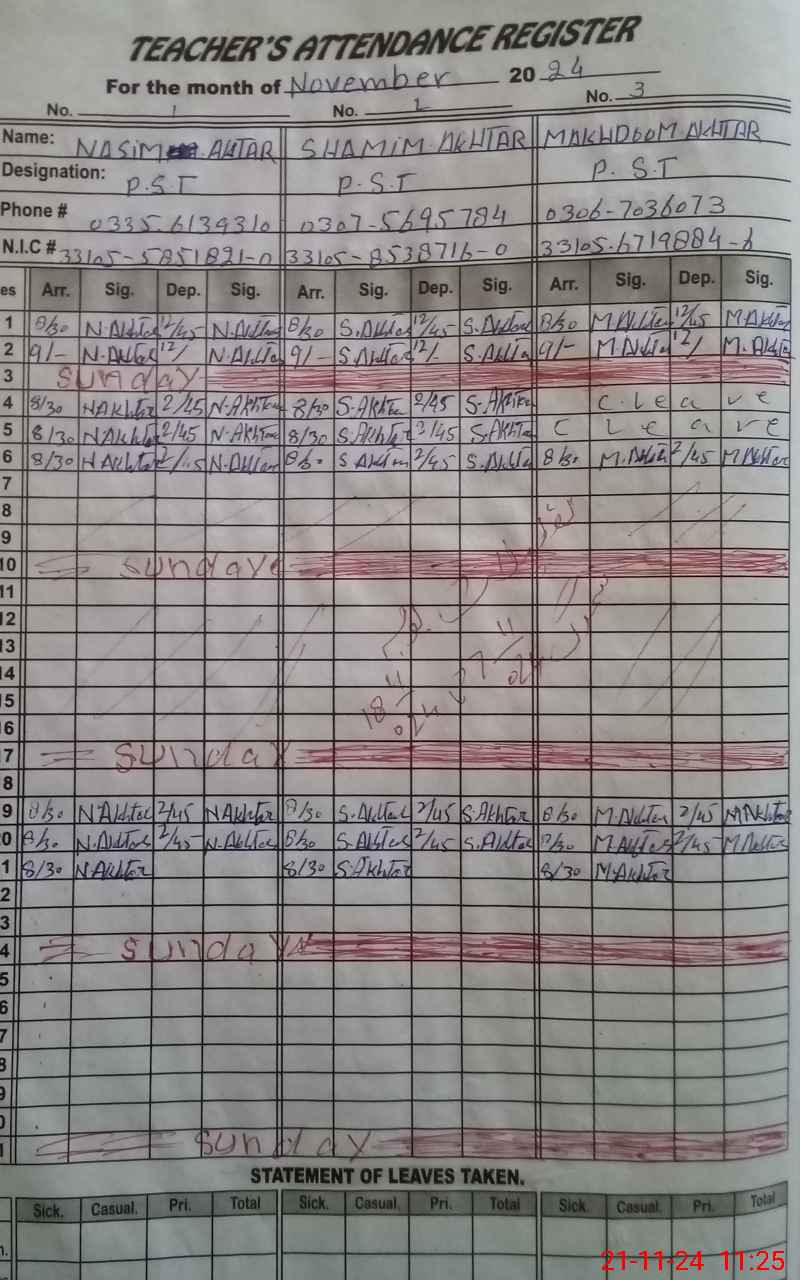 TEACHER'S ATTENDANCE REGISTER
For the month of November 2024
No. 1 No. 2 No. 3
Name: NASIM AKHTAR SHAMIM AKHTAR MAKHDOOM AKHTAR
Designation: P.S.T P.S.T P.S.T
Phone # 0335-6139310 0307-5695784 0306-7036073
N.I.C # 33105-5851821-0 33105-8538716-0 33105-6719884-6
es Arr. Sig. Dep. Sig. Arr. Sig. Dep. Sig. Arr. Sig. Dep. Sig.
1 8/30 N.Akhtar 12/45 N.Akhtar 8/30 S.Akhtar 12/45 S.Akhtar 8/30 M.Akhtar 12/45 M.Akhtar
2 9/- N.Akhtar 12/ N.Akhtar 9/- S.Akhtar 12/- S.Akhtar 9/- M.Akhtar 12/ M.Akhtar
3 Sunday
4 8/30 N.Akhtar 2/45 N.Akhtar 8/30 S.Akhtar 2/45 S.Akhtar C.Leave
5 8/30 N.Akhtar 2/45 N.Akhtar 8/30 S.Akhtar 2/45 S.Akhtar C Leave
6 8/30 N.Akhtar N.Akhtar 8/30 S.Akhtar 2/45 S.Akhtar 8/30 M.Akhtar 2/45 M.Akhtar
7
8
9
10 Sunday
11
12
13
14
15
6
7 Sunday
8
9 8/30 N.Akhtar 2/45 N.Akhtar 8/30 S.Akhtar 2/45 S.Akhtar 8/30 M.Akhtar 2/45 M.Akhtar
0 8/30 N.Akhtar 2/45 N.Akhtar 8/30 S.Akhtar 2/45 S.Akhtar 8/30 M.Akhtar 2/45 M.Akhtar
1 8/30 N.Akhtar 8/30 S.Akhtar 8/30 M.Akhtar
2
3
4 Sunday
5
6
7
8
9
0
1 Sunday
STATEMENT OF LEAVES TAKEN.
Sick. Casual. Pri. Total Sick. Casual. Pri. Total Sick. Casual. Pri. Total
21-11-24 11:25